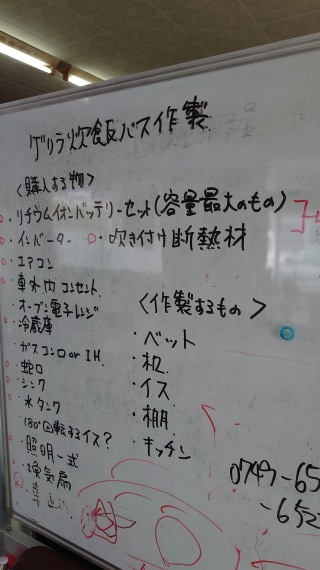 ゲリラ炊飯バス作製
<購入する物>
・リチウムイオンバッテリーセット(容量最大のもの)
・インバーター
○吹き付け断熱材
・エアコン
・車外内コンセント
・オーブン電子レンジ
・冷蔵庫
・ガスコンロorIH
・蛇口
・シンク
・水タンク
・180°回転するイス?
・照明一式
・換気扇
<作製するもの>
・ベット
・机
・イス
・棚
・キッチン
0749-65
-652